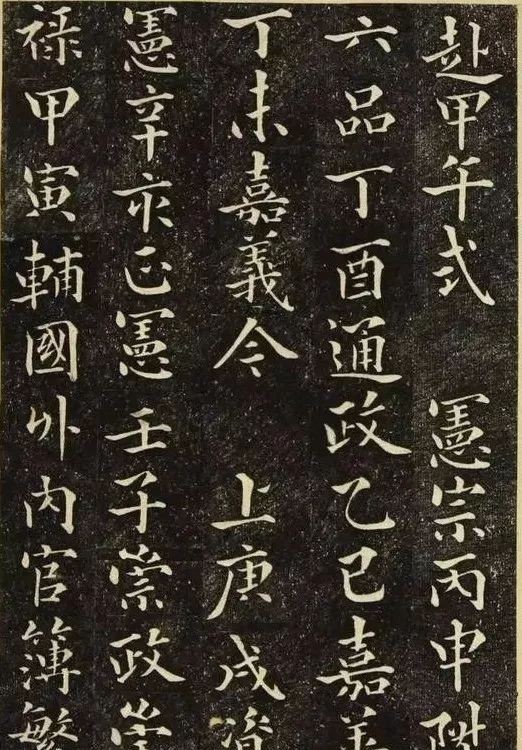 赴甲午式 憲宗丙申陞
六品丁酉通政乙巳嘉善
丁未嘉義今 上庚戌資
憲辛亥正憲壬子崇政崇
禄甲寅輔國外内官簿繁